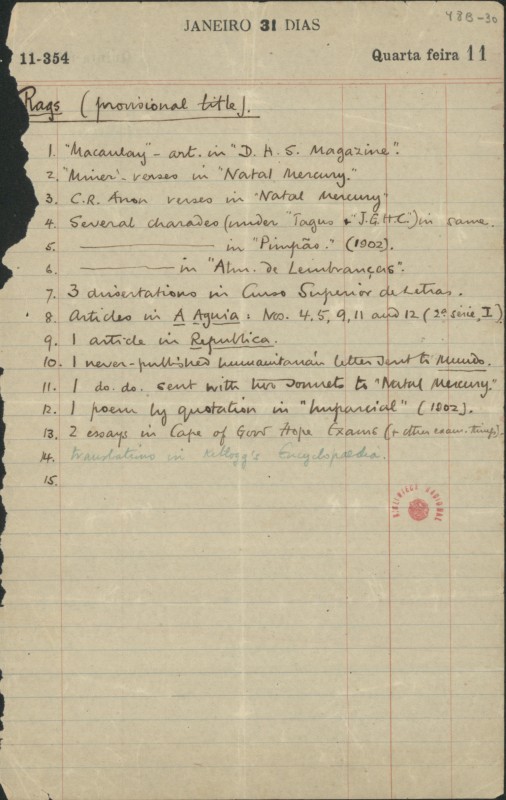 48B-30
JANEIRO 31 DIAS
11-354 Quarta feira 11
Rags (provisional title).
1. "Macaulay" - art. in "D. H. S. Magazine".
2. "Miner" - verses in "Natal Mercury."
3. C.R. Anon verses in "Natal Mercury"
4. Several charades (under "Tagus" & "J.G.H.C.") in same.
5. ———— in "Pimpão." (1902).
6. ———— in "Alm. de Lembranças".
7. 3 dissertations in Curso Superior de Letras.
8. Articles in A Aguia: Nos. 4, 5, 9, 11 and 12 (2ª série, I)
9. 1 article in Republica.
10. 1 never-published humanitarian letter sent to Mundo.
11. 1 do. do. sent with two sonnets to "Natal Mercury."
12. 1 poem by quotation in "Imparcial" (1902).
13. 2 essays in Cape of Good Hope Exams (& other exam.
14. Translations in Kellogg's Encyclopædia.
15.
BIBLIOTECA NACIONAL